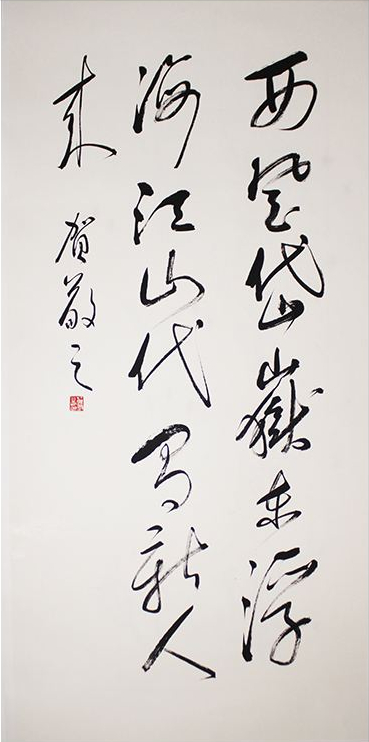 西登岱嶽东浮
海江山代有新人
来 贺敬之